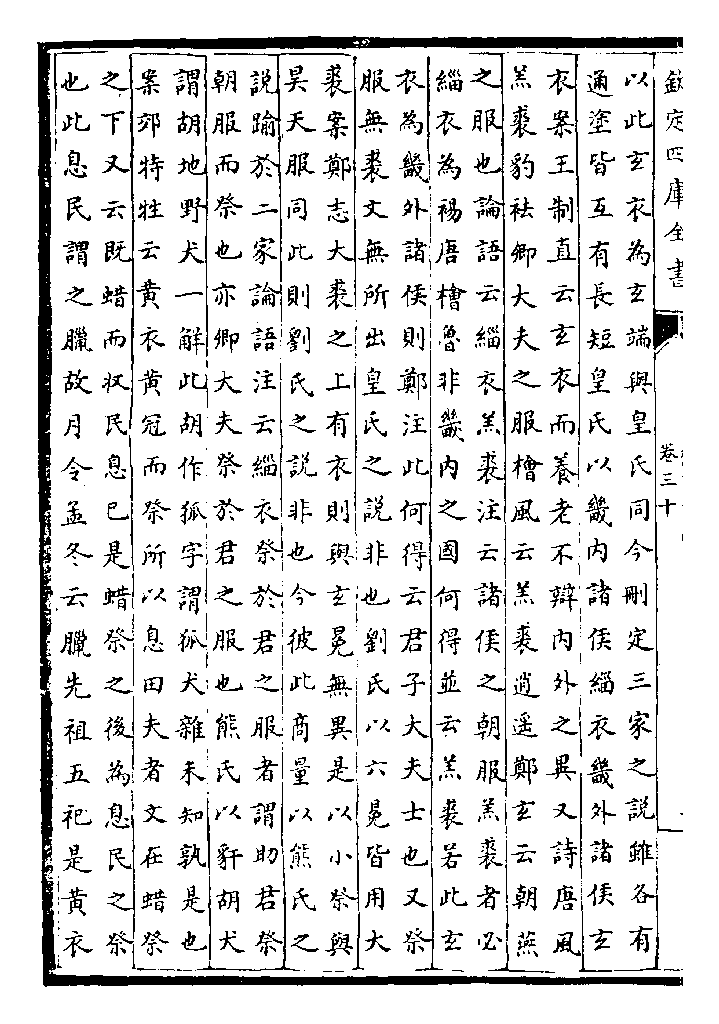 欽定四庫全書
卷三十
以此玄衣為玄端與皇氏同今刪定三家之說雖各有
通塗皆互有長短皇氏以畿內諸侯緇衣畿外諸侯玄
衣案王制直云玄衣而養老不辯內外之異又詩唐風
羔裘豹袪卿大夫之服檜風云羔裘逍遥鄭玄云朝燕
之服也論語云緇衣羔裘注云諸侯之朝服羔裘者必
緇衣為裼唐檜魯非畿內之國何得並云羔裘若此玄
衣為畿外諸侯則鄭注此何得云君子大夫士也又祭
服無裘文無所出皇氏之說非也劉氏以六冕皆用大
裘案鄭志大裘之上有衣則與玄冕無異是以小祭與
昊天服同此則劉氏之說非也今彼此商量以熊氏之
說踰於二家論語注云緇衣祭於君之服者謂助君祭
朝服而祭也亦卿大夫祭於君之服也熊氏以豻胡犬
謂胡地野犬一解此胡作狐字謂狐犬雜未知孰是也
案郊特牲云黄衣黄冠而祭所以息田夫者文在蜡祭
之下又云既蜡而収民息已是蜡祭之後為息民之祭
也此息民謂之臘故月令孟冬云臘先祖五祀是黄衣